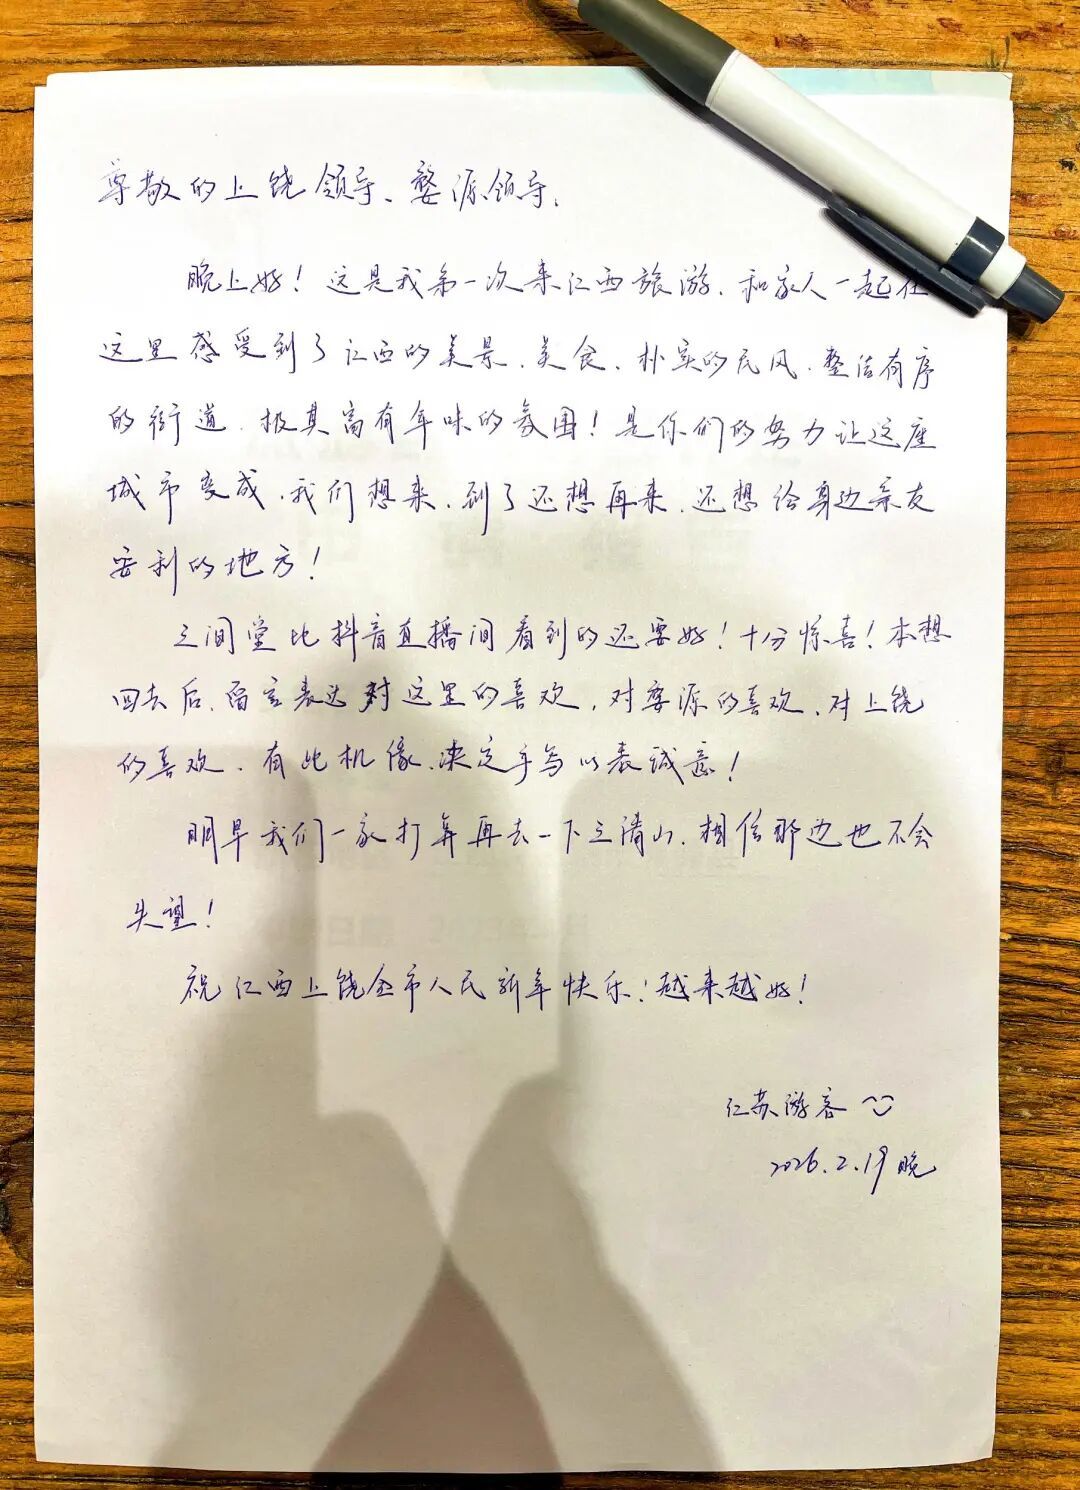 尊敬的上饶领导、婺源领导、
晚上好！这是我第一次来江西旅游，和家人一起在
这里感受到了江西的美景、美食、朴实的民风、整洁有序
的街道、极其富有年味的氛围！是你们的努力让这座
城市变成，我们想来，到了还想再来，还想给身边亲友
安利的地方！
三间堂比抖音直播间看到的还要好！十分惊喜！本想
回去后，留言表达对这里的喜欢，对婺源的喜欢，对上饶
的喜欢，有此机缘，决定手写以表诚意！
明早我们一家打算再去一下三清山，相信那边也不会
失望！
祝江西上饶全市人民新年快乐！越来越好！
江苏游客
2026.2.19晚